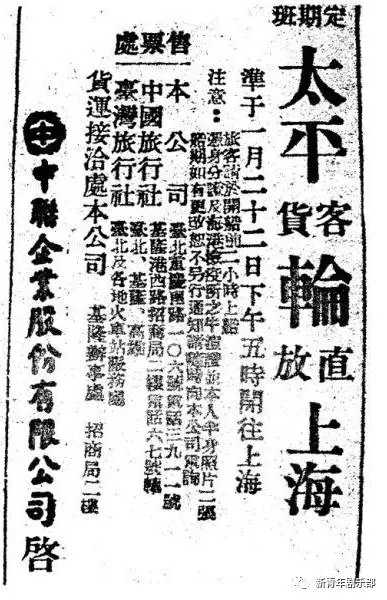 定期班
太平客貨輪直放上海
準于一月二十二日下午五時開往上海
注意：
旅客請於開船前二小時上船
憑身分證及海港檢疫所之牛痘證並本人半身照片二張
船期如有更改恕不另行通知請隨時向本公司電詢
售票處
本公司 臺北重慶南路一〇六號電話三九一一號
基隆港西路招商局二樓電話六七號轉
中國旅行社 臺北、基隆、高雄
臺灣旅行社 臺北及各地火車站服務處
貨運接洽處本公司 基隆辦事處 招商局二樓
中聯企業股份有限公司啓
新青年剧乐部